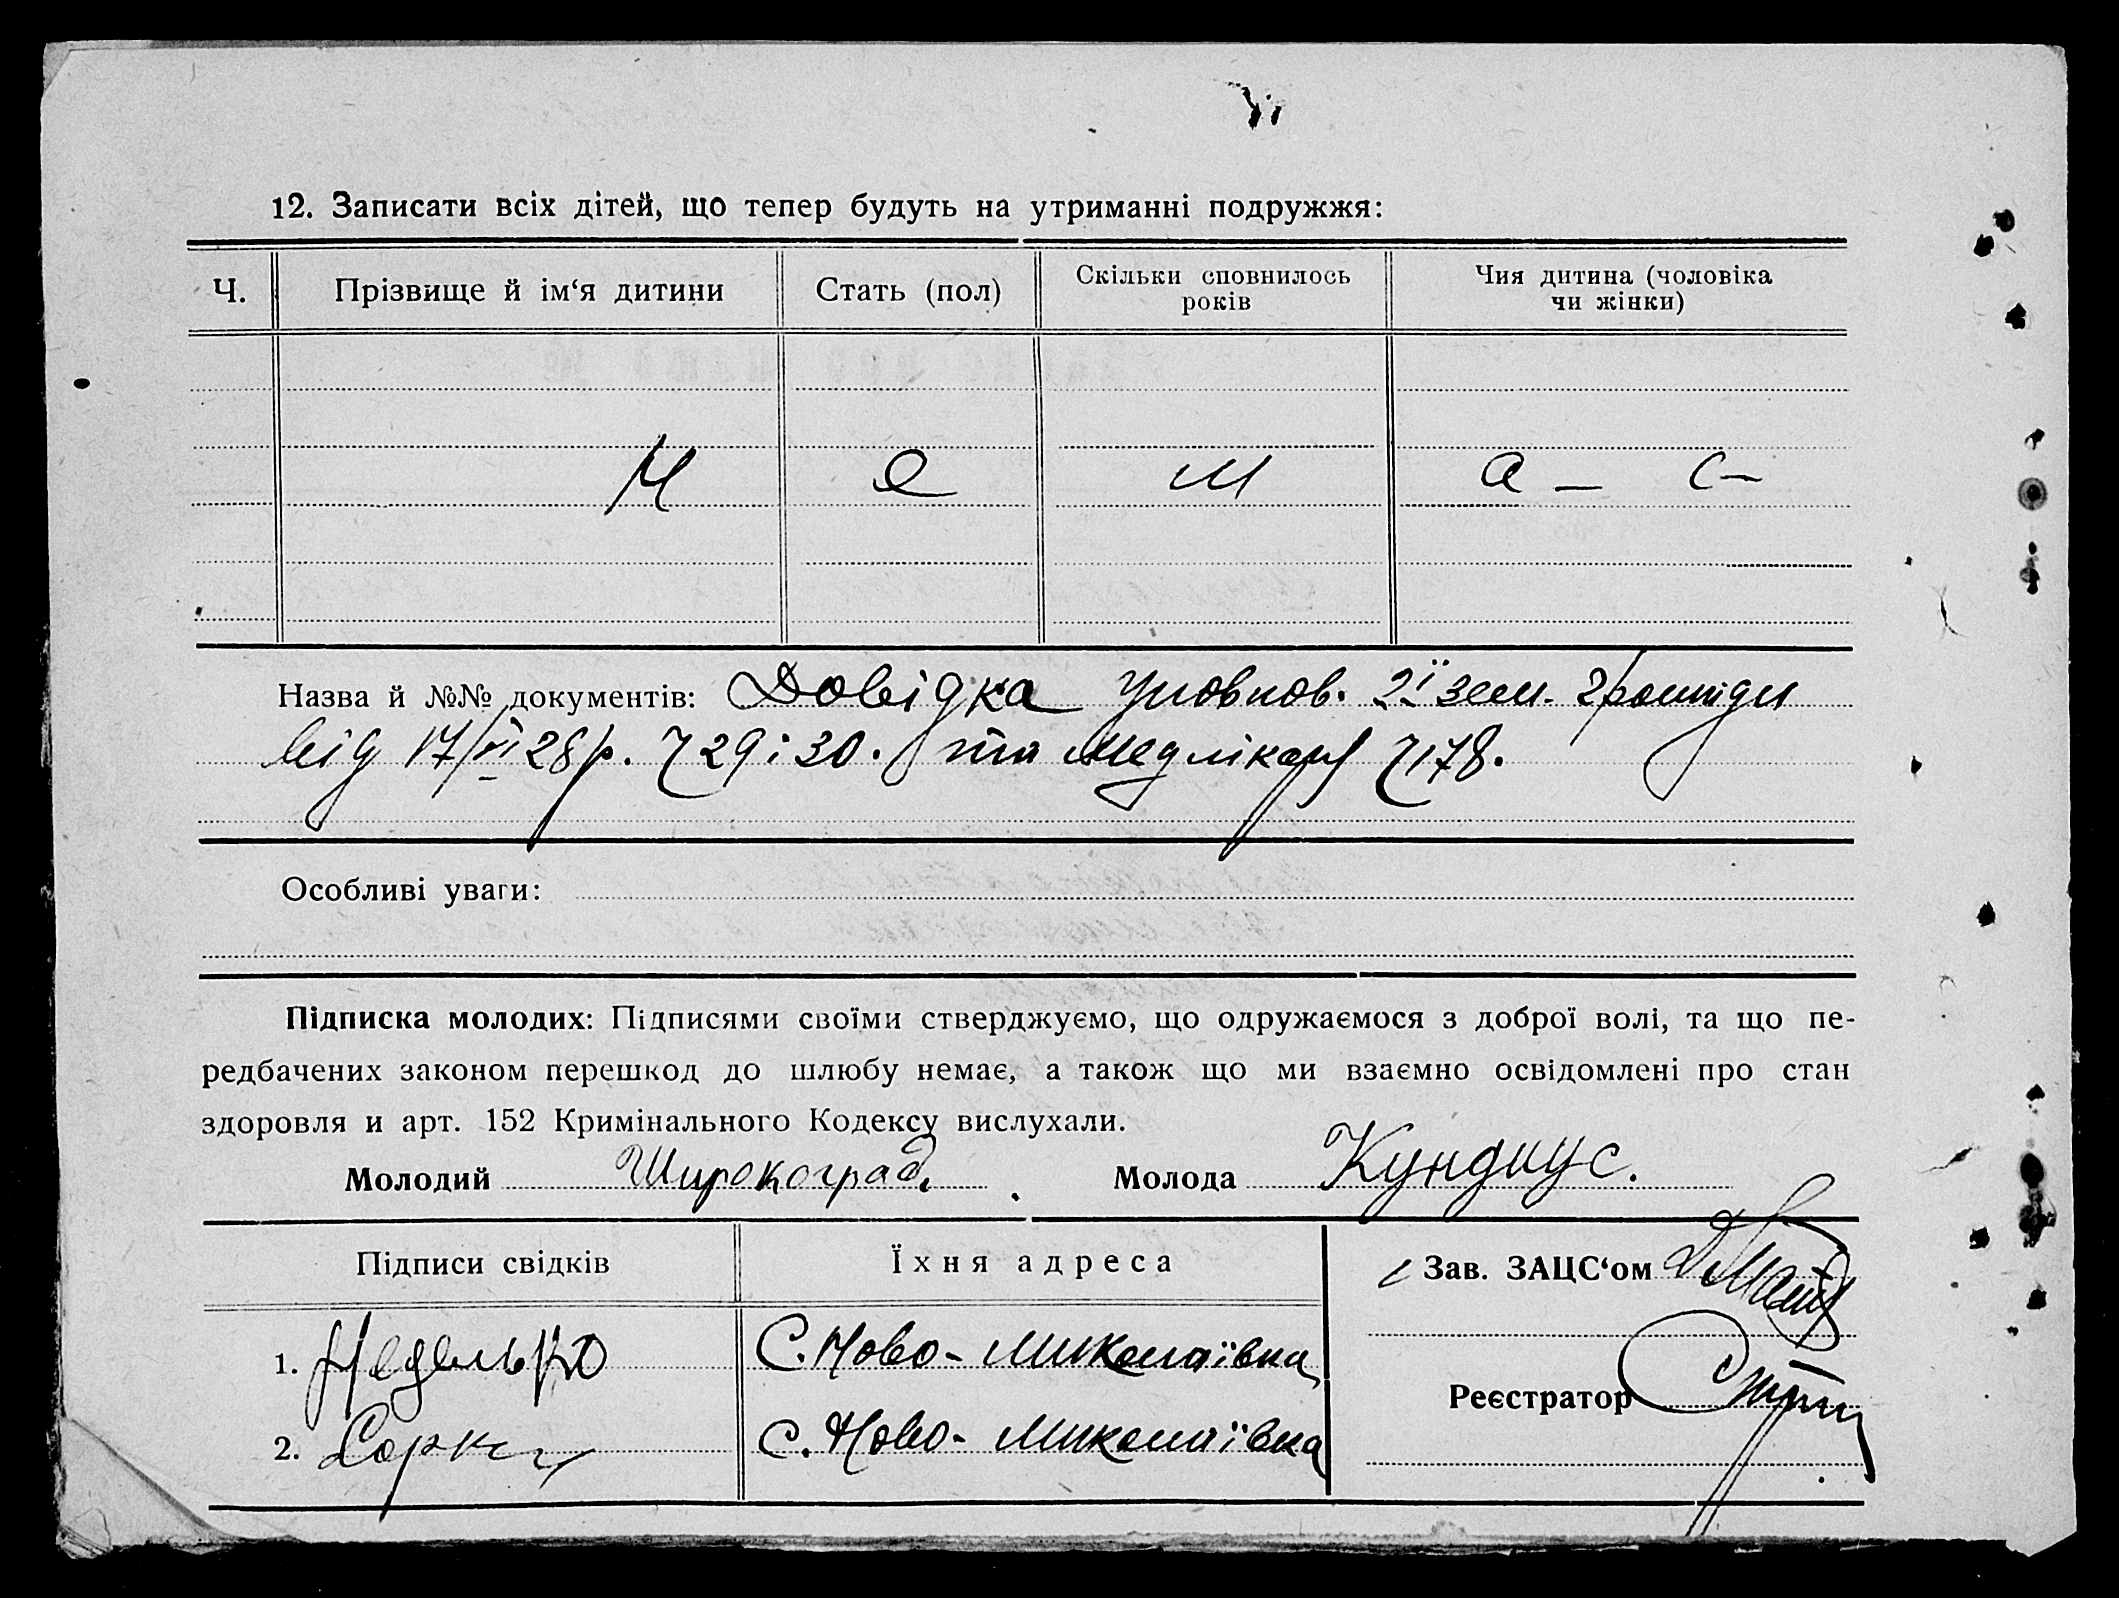 12. Записати всіх дітей, що тепер будуть на утриманні подружжя:
Ч. Прізвище й ім‘я дитини Стать (пол) Скільки сповнилось років Чия дитина (чоловіка чи жінки)
Н е м а – є –
Назва й №№ документів: Довідка уповнов. 2ї зем. громади
від 17/VI 28 р. № 29 і 30. та Медлікаря № 178.
Особливі уваги:
Підписка молодих: Підписями своїми стверджуємо, що одружаємося з доброї волі, та що пе-
редбачених законом перешкод до шлюбу немає, а також що ми взаємно освідомлені про стан
здоровля и арт. 152 Кримінального Кодексу вислухали.
Молодий Широкоград. Молода Кундиус.
Підписи свідків Їхня адреса Зав. ЗАЦС‘ом
1. Неделько С. Ново-Миколаївка
Реєстратор
2. С. Ново-Миколаївка